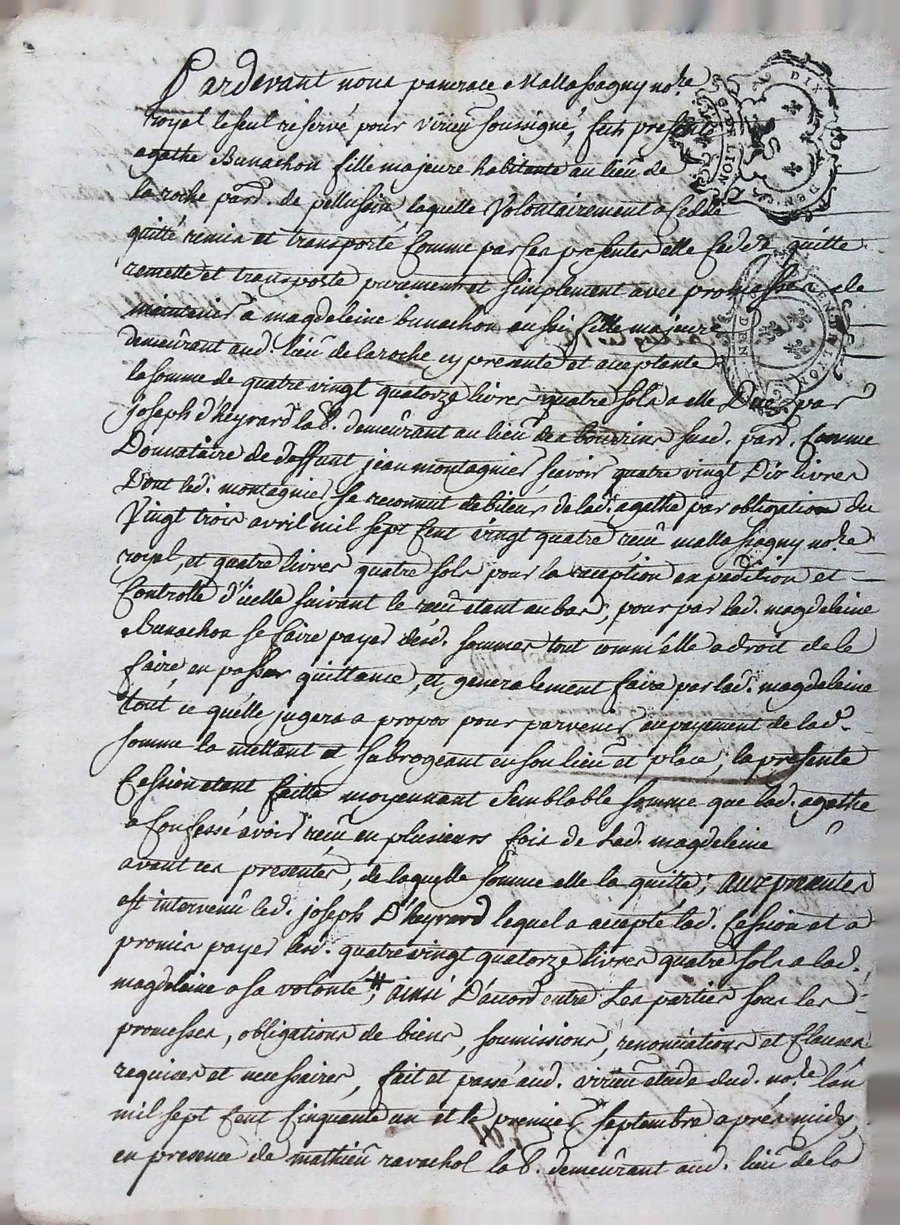 Pardevant nous pancrace Mallassagny no.re
royal le seul reservé pour virieu soussigné, fut presente
agathe Bunachon fille majeure habitante au lieu de
la roche par.d de pellussin laquelle volontairement a cedde
quitté remis et transporté comme par ces presentes elle cedde quitte
remette et transporte purement et simplement avec promesses de
maintenir a magdeleine bunachon aussi fille majeure
demeurant aud. lieu de la roche cy presente et acceptante
la somme de quatre vingt quatorze livres quatre sols a elle Due par
joseph d'heyrard la.b. demeurant au lieu des bourins susd. par.d. comme
Donnataire de deffunt jean montagnier scavoir quatre vingt Dix livres
Dont led. montagnier se reconnut debiteur de lad. agathe par obligation du
Vingt trois avril mil sept cent vingt quatre reçu mallassagny no.re
royal, et quatre livres quatre sols pour la reception expedition et
Controlle d'icelle suivant le reçu etant au bas, pour par lad. magdeleine
Bunachon se faire payer desd. sommes tout comm'elle a droit de le
faire, en passer quittance, et generalement faire par lad. magdeleine
tout ce qu'elle jugera a propos pour parvenir au payement de lad.
somme la mettant et subrogeant en son lieu et place, la presente
Cession etant faitte moyennant semblable somme que lad. agathe
a confessé avoir reçu en plusieurs fois de lad. magdeleine
avant ces presentes, de laquelle somme elle la quitte; aux presentes
est intervenu led. joseph D'heyrard lequel a accepté lad. Cession et a
promis payer lesd. quatre vingt quatorze livres quatre sols a lad.
magdeleine a sa volonté #, ainsi D'acord entre les parties sous les
promesses, obligations de biens, soumissions, renonciations et clauses
requises et necessaires, fait et passé aud. virieu etude dud. no.re l'an
mil sept cent cinquante un et le premier septembre après midy
en presence de mathieu ravachol la.b. demeurant aud. lieu de la